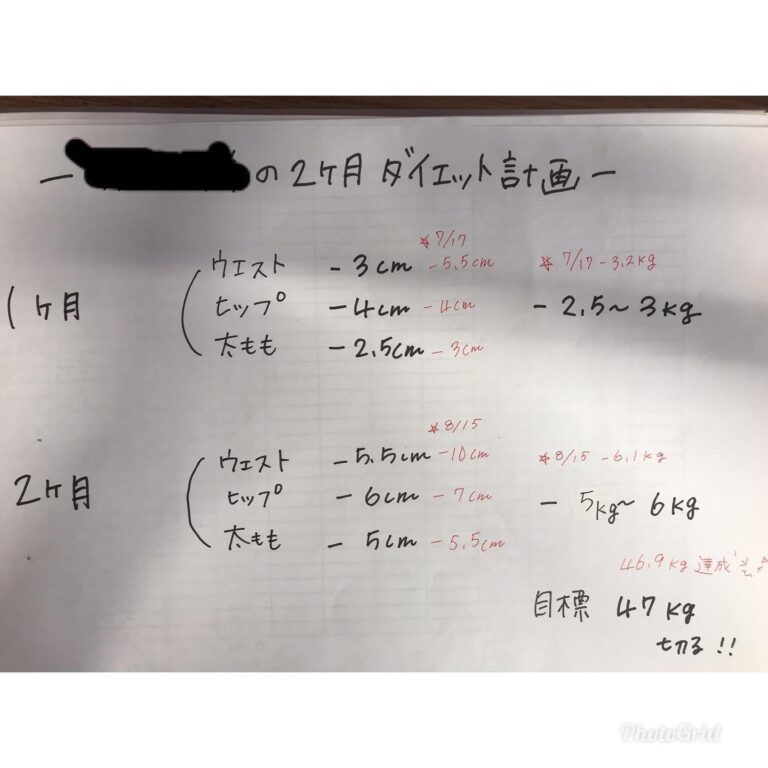 ー の2ヶ月ダイエット計画ー
☆7/17
ウエスト -3cm -5.5cm ☆7/17 -3.2kg
1ヶ月 ヒップ -4cm -4cm -2.5〜3kg
太もも -2.5cm -3cm
☆8/15
ウエスト -5.5cm -10cm ☆8/15 -6.1kg
2ヶ月 ヒップ -6cm -7cm -5kg〜6kg
太もも -5cm -5.5cm
46.9kg 達成
目標 47kg
切る!!
PhotoGrid